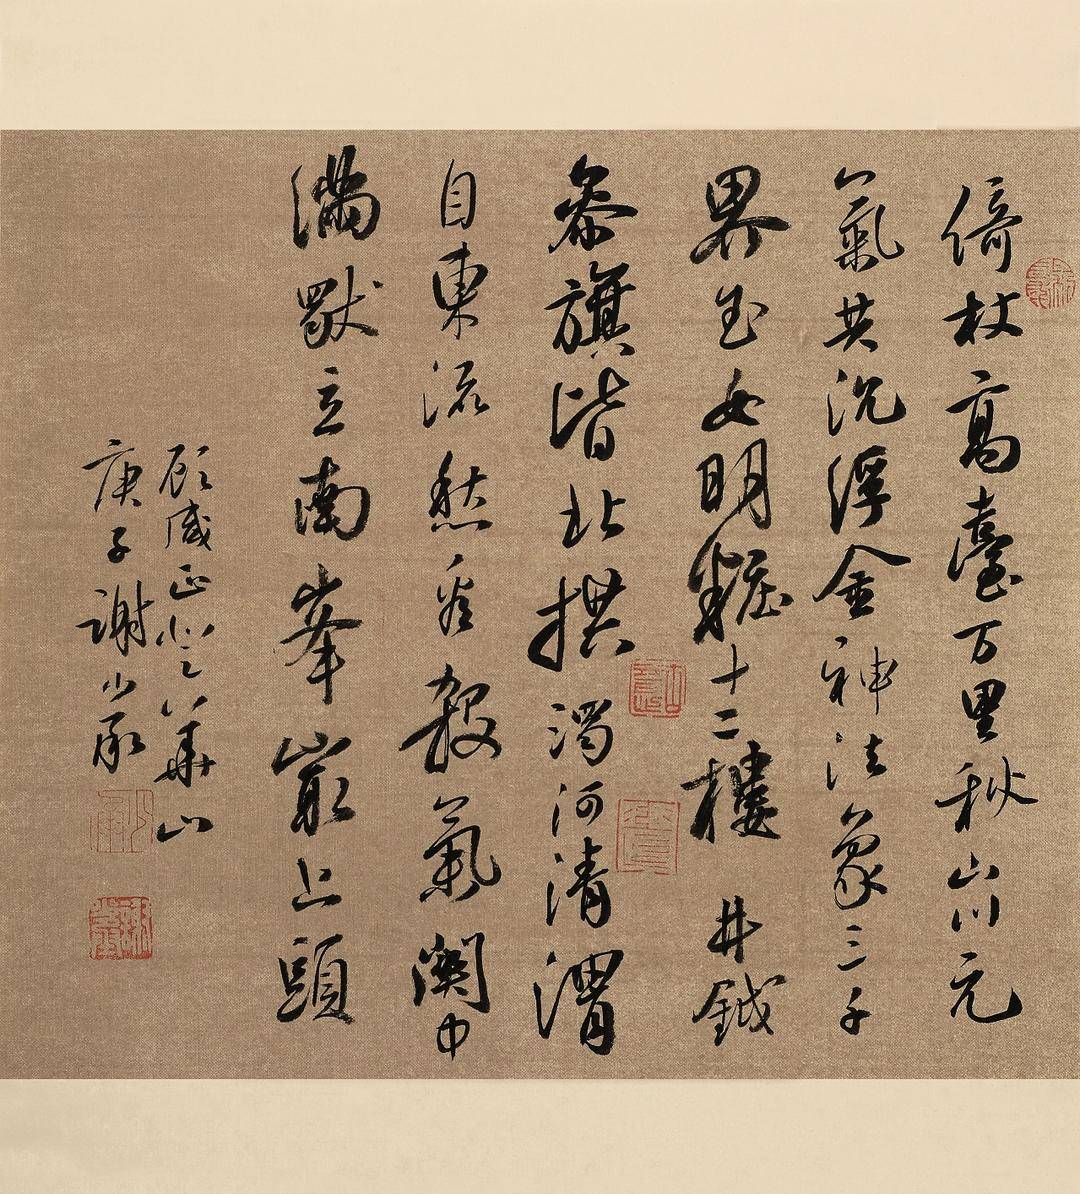 倚杖高臺万里秋山川元
氣共沉浮金神法象三千
界玉女明粧十二樓井鉞
參旗皆北拱濁河清渭
自東流愁看殺氣關中
滿獸立南峯最上頭
顧咸正登華山
庚子謝少承